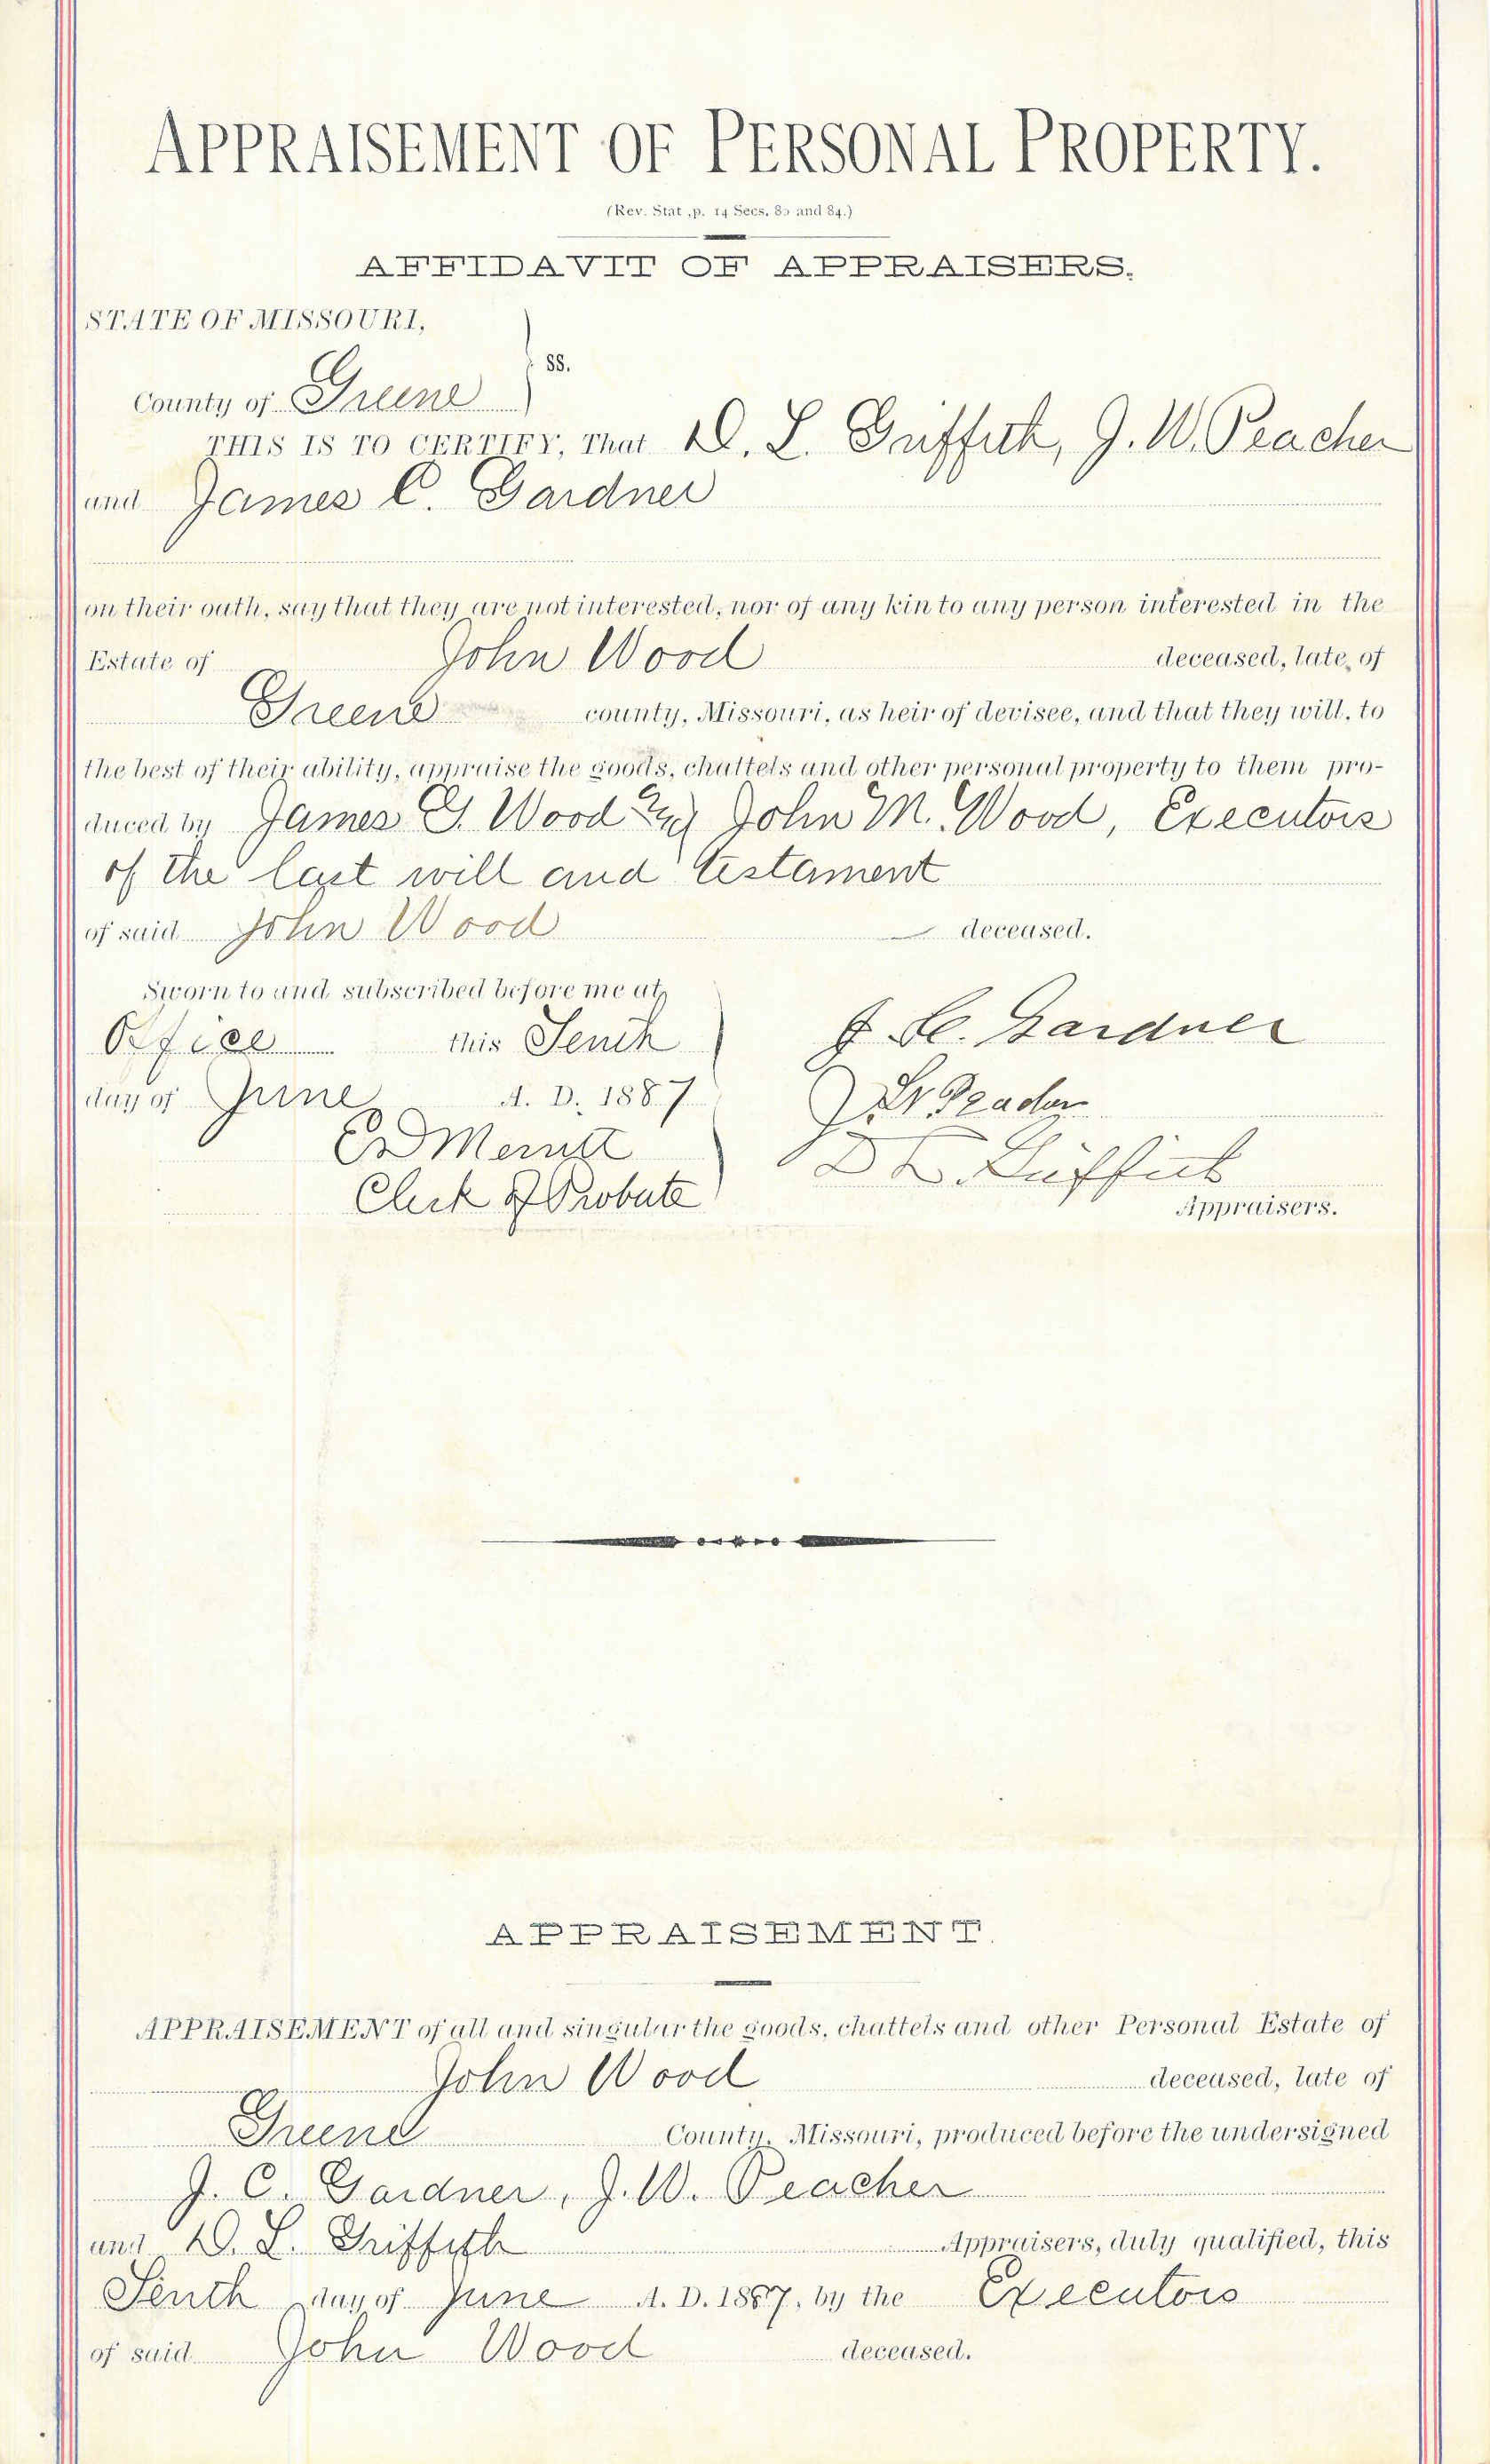 APPRAISEMENT OF PERSONAL PROPERTY.
(Rev. Stat., p. 14 Secs. 80 and 84.)
AFFIDAVIT OF APPRAISERS.
STATE OF MISSOURI,
ss.
County of Greene
THIS IS TO CERTIFY, That D. L. Griffith, J. W. Peacher
and James C. Gardner
on their oath, say that they are not interested, nor of any kin to any person interested in the
Estate of John Wood deceased, late of
Greene county, Missouri, as heir of devisee, and that they will, to
the best of their ability, appraise the goods, chattels and other personal property to them pro-
duced by James G. Wood and John M. Wood, Executors
of the last will and testament
of said John Wood deceased.
Sworn to and subscribed before me at
Office this Tenth
day of June A. D. 1887
E D Merritt
Clerk of Probate
J. C. Gardner
J. W. Peacher
D L. Griffith
Appraisers.
APPRAISEMENT.
APPRAISEMENT of all and singular the goods, chattels and other Personal Estate of
John Wood deceased, late of
Greene County, Missouri, produced before the undersigned
J. C. Gardner, J. W. Peacher
and D. L. Griffith Appraisers, duly qualified, this
Tenth day of June A. D. 1887, by the Executors
of said John Wood deceased.